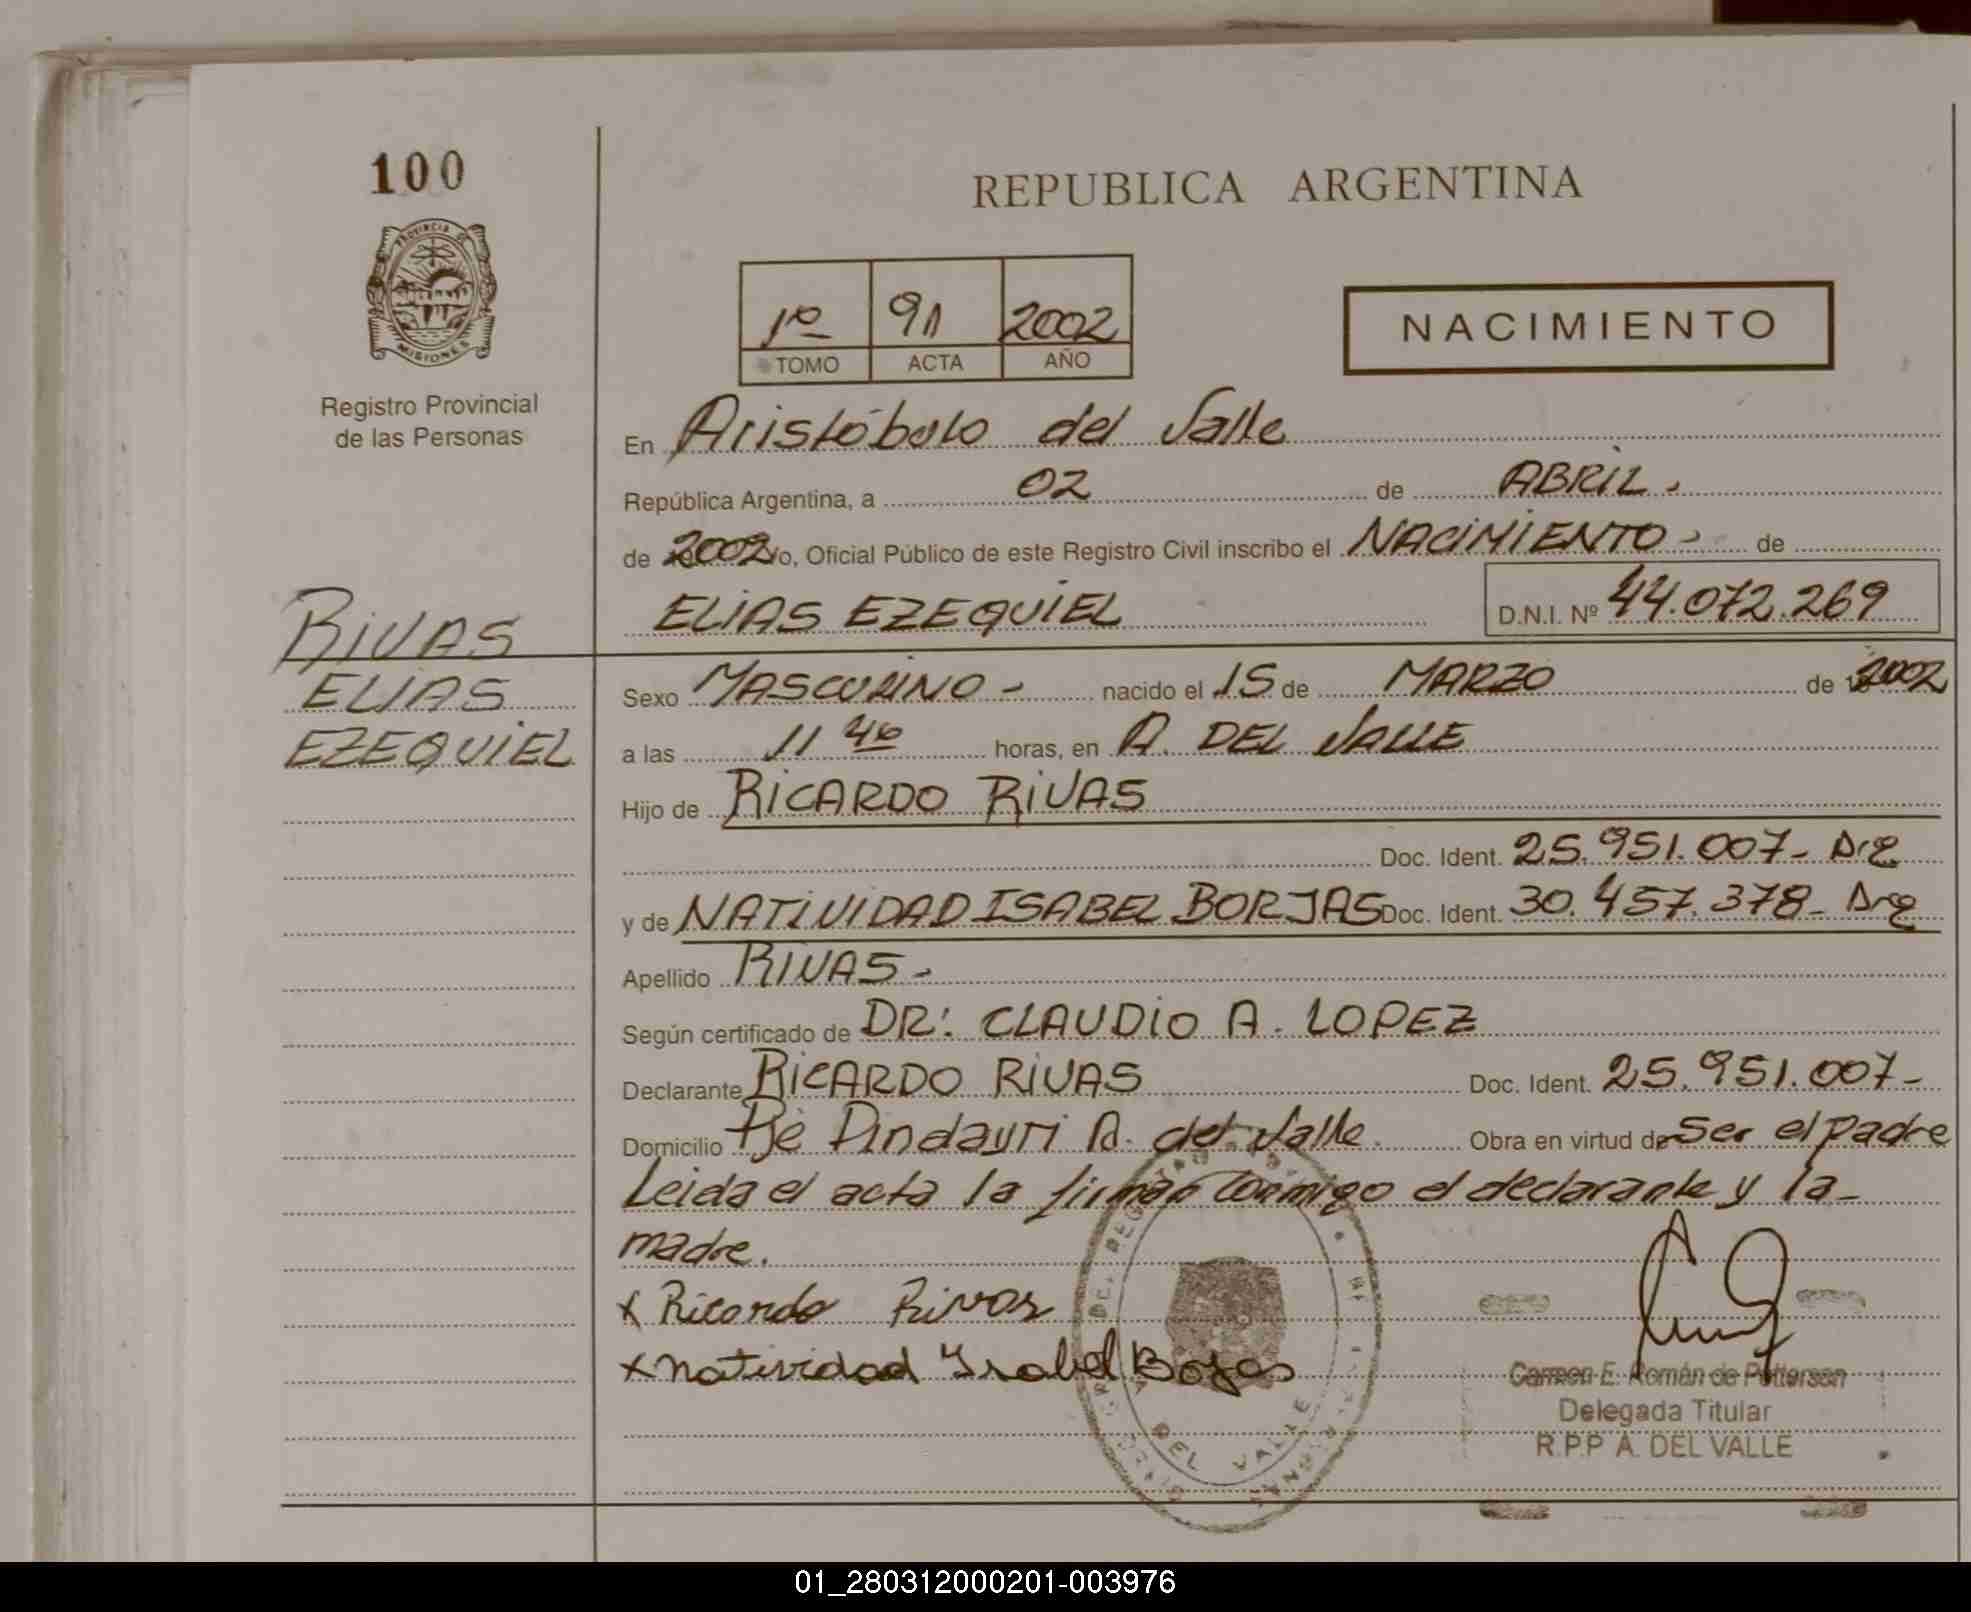 100
PROVINCIA DE
MISIONES
Registro Provincial
de las Personas
RIVAS
ELIAS
EZEQUIEL
REPUBLICA ARGENTINA
1º 91 2002
TOMO ACTA AÑO
NACIMIENTO
En Aristóbulo del Valle
República Argentina, a 02 de ABRIL.
de 2002 yo, Oficial Público de este Registro Civil inscribo el NACIMIENTO - de
ELIAS EZEQUIEL D.N.I. Nº 44.072.269
Sexo MASCULINO - nacido el 15 de MARZO de 2002
a las 11 40 horas, en A. DEL VALLE
Hijo de RICARDO RIVAS
Doc. Ident. 25.951.007- Arg
y de NATIVIDAD ISABEL BORJAS Doc. Ident. 30.457.378- Arg
Apellido RIVAS -
Según certificado de DR: CLAUDIO A. LOPEZ
Declarante RICARDO RIVAS Doc. Ident. 25.951.007-
Domicilio Pje Pindayti A. del Valle. Obra en virtud de Ser el padre
Leida el acta la firman conmigo el declarante y la-
madre.
x Ricardo Rivas
x Natividad Ysabel Bojas
DEL VALLE
Carmen E. Román de Petterson
Delegada Titular
R.P.P A. DEL VALLE
01_280312000201-003976